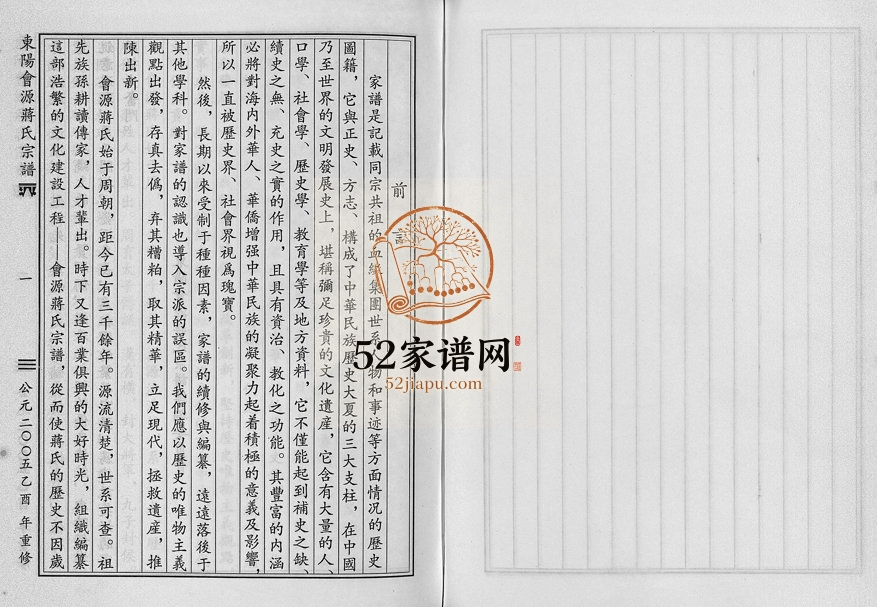 前言
家譜是記載同宗共祖的血緣集團世系人物和事迹等方面情况的歷史
圖籍，它與正史、方志、構成了中華民族歷史大夏的三大支柱，在中國
乃至世界的文明發展史上，堪稱彌足珍貴的文化遺産，它含有大量的人、
口學、社會學、歷史學、教育學等及地方資料，它不僅能起到補史之缺、
續史之無、充史之實的作用，且具有資治、教化之功能。其豐富的内涵
必將對海内外華人、華僑增强中華民族的凝聚力起着積極的意義及影響，
所以一直被歷史界、社會界視爲瑰寶。
然後，長期以來受制于種種因素，家譜的續修與編纂，遠遠落後于
其他學科。對家譜的認識也導入宗派的誤區。我們應以歷史的唯物主義
觀點出發，存真去僞，弃其糟粕，取其精華，立足現代，拯救遺産，推
陳出新。
會源蔣氏始于周朝，距今已有三千餘年。源流清楚，世系可查。祖
先族孫耕讀傳家，人才輩出。時下又逢百業俱興的大好時光，組織編纂
這部浩繁的文化建設工程——會源蔣氏宗譜，從而使蔣氏的歷史不因歲
東陽會源蔣氏宗譜
一
公元二〇〇五乙酉年重修
52家谱网
52jiapu.com